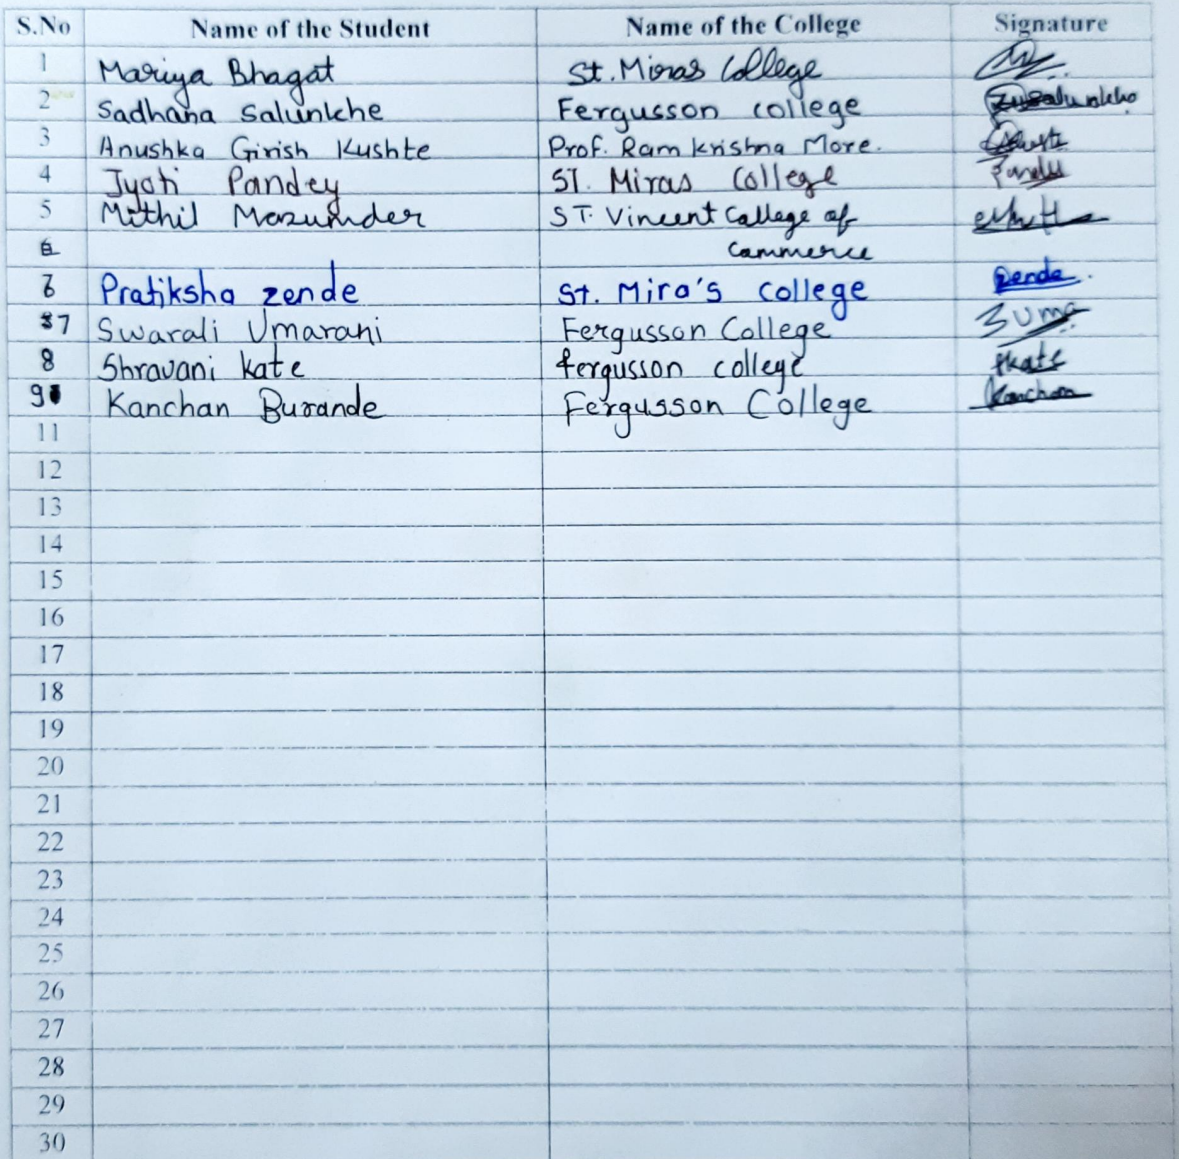 S.No Name of the Student Name of the College Signature
1 Mariya Bhagat St. Miras College
2 Sadhana Salunkhe Fergusson college
3 Anushka Girish Kushte Prof. Ram krishna More.
4 Jyoti Pandey ST. Miras College
5 Mithil Mazumder ST. Vincent College of
6 Commerce
6 Pratiksha zende St. Mira's college Zende.
7 Swarali Umarani Fergusson College
8 Shravani kate fergusson college skate
9 Kanchan Burande Fergusson College Kanchan
11
12
13
14
15
16
17
18
19
20
21
22
23
24
25
26
27
28
29
30